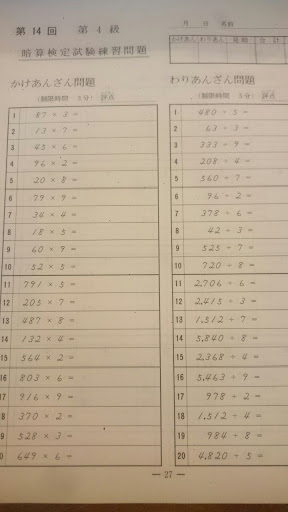 第14回 第4級
暗算検定試験練習問題
月 日 名前
かけあん わりあん 見取 合計
かけあんざん問題
(制限時間 3分) 評点
1 87 × 3 =
2 13 × 7 =
3 45 × 6 =
4 96 × 2 =
5 20 × 8 =
6 79 × 9 =
7 34 × 4 =
8 18 × 5 =
9 60 × 9 =
10 52 × 5 =
11 791 × 5 =
12 205 × 7 =
13 487 × 8 =
14 132 × 4 =
15 564 × 2 =
16 803 × 6 =
17 916 × 9 =
18 370 × 2 =
9 528 × 3 =
0 649 × 6 =
わりあんざん問題
(制限時間 3分) 評点
1 480 ÷ 5 =
2 63 ÷ 3 =
3 333 ÷ 9 =
4 208 ÷ 4 =
5 560 ÷ 7 =
6 96 ÷ 2 =
7 378 ÷ 6 =
8 42 ÷ 3 =
9 525 ÷ 7 =
10 720 ÷ 8 =
11 2,706 ÷ 6 =
12 2,415 ÷ 3 =
13 1,512 ÷ 7 =
14 5,840 ÷ 8 =
15 2,368 ÷ 4 =
16 5,463 ÷ 9 =
17 978 ÷ 2 =
18 1,512 ÷ 4 =
19 984 ÷ 8 =
20 4,820 ÷ 5 =
— 27 —